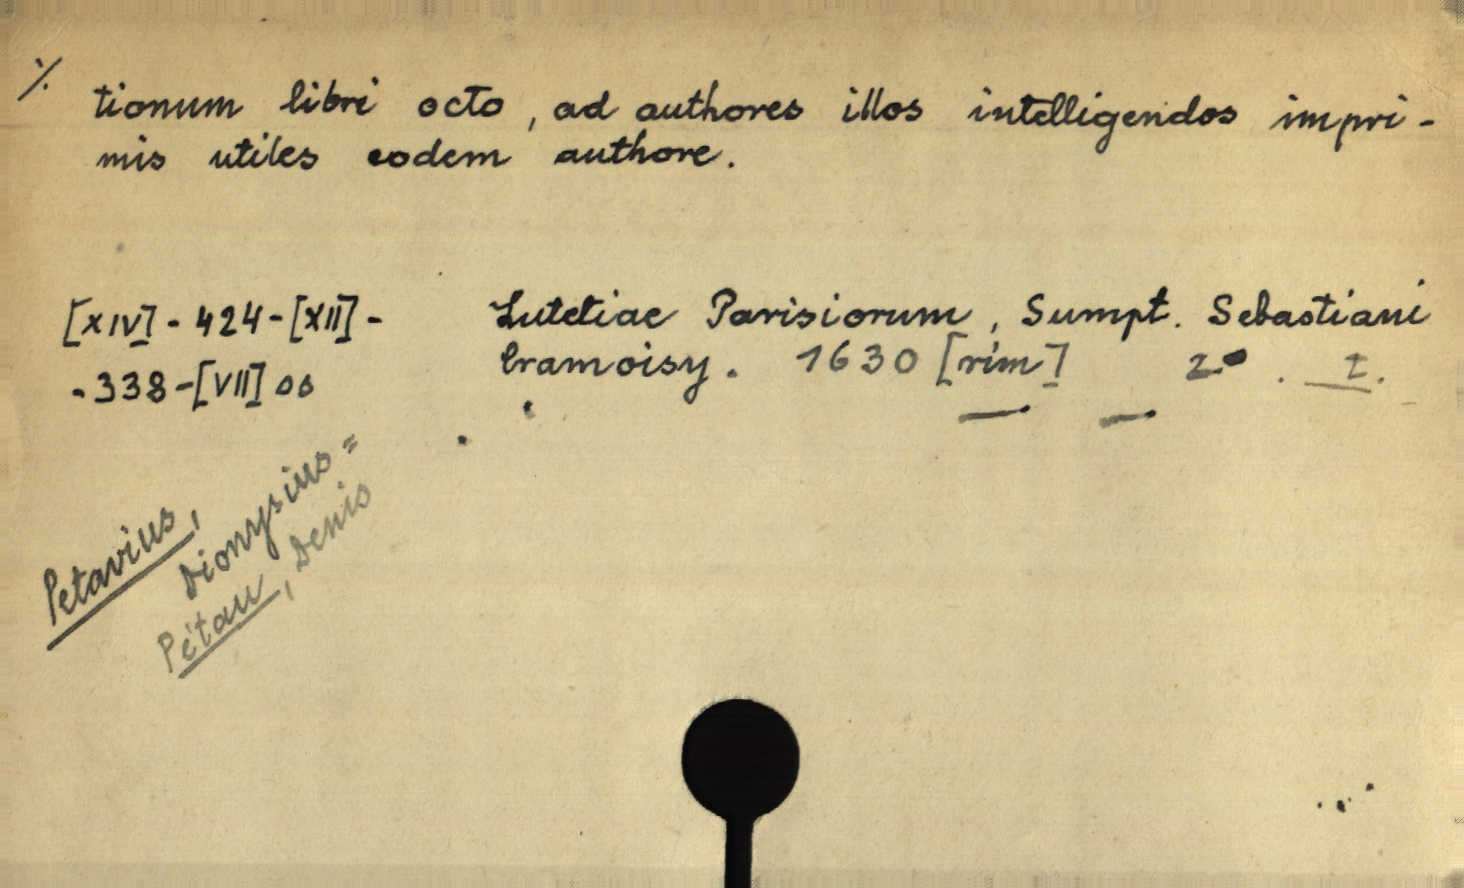 ./.
tionum libri octo, ad authores illos intelligendos impri-
mis utiles eodem authore.
[XIV] - 424 - [XII] -
- 338 - [VII] oo
Lutetiae Parisiorum, Sumpt. Sebastiani
Cramoisy. 1630 [rim] 2°. I.
Petavius,
Dionysius =
Pétau, Denis